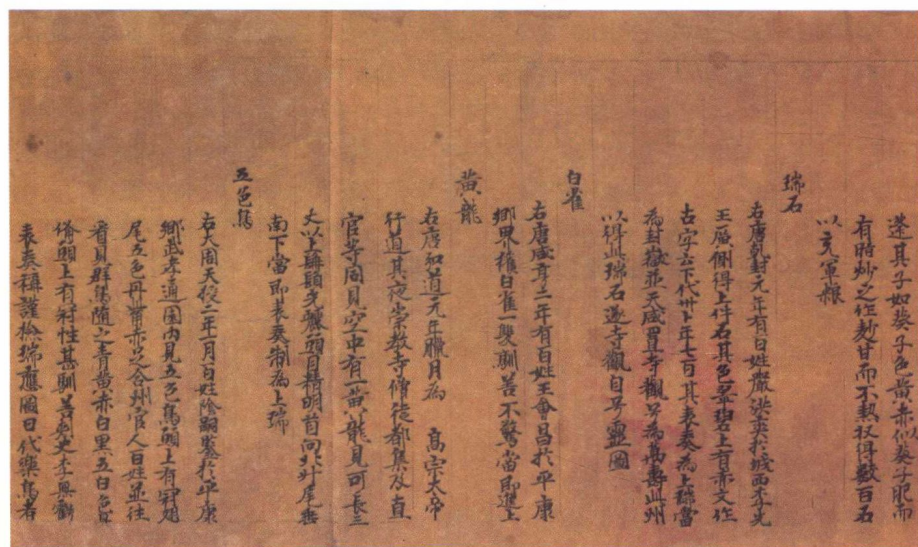 蓬其子如葵子色黃赤似葵子肥而
有脂炒之作麨甘而不熱收得數百石
以充軍粮
瑞石
右唐乾封元年有百姓嚴洪爽於城西李先
王廟側得上件石其色翠碧上有赤文作
古字云下代卅卜年七百其表奏為上瑞當
為封嶽並天咸置寺觀号為萬壽此州
以得此瑞石遂寺觀自号靈圖
白雀
右唐咸亨二年有百姓王會昌於平康
鄉界獲白雀一雙馴善不驚當即進上
黃龍
右唐弘道元年臘月為 高宗大帝
行道其夜崇教寺僧徒都集及直
官等同見空中有一黃龍見可長三
丈以上髯鬚光麗頭目精明首向北升尾垂
南下當即表奏制為上瑞
五色鳥
右大周天授二年一月百姓陰嗣鑒於平康
鄉武孝通園內見五色鳥頭上有冠翅
尾五色丹觜赤足合州官人百姓並往
看見群鳥隨之青黃赤白黑五白色具
備頭上有冠性甚馴善刺史李無虧
表奏稱謹檢瑞應圖曰代樂鳥者